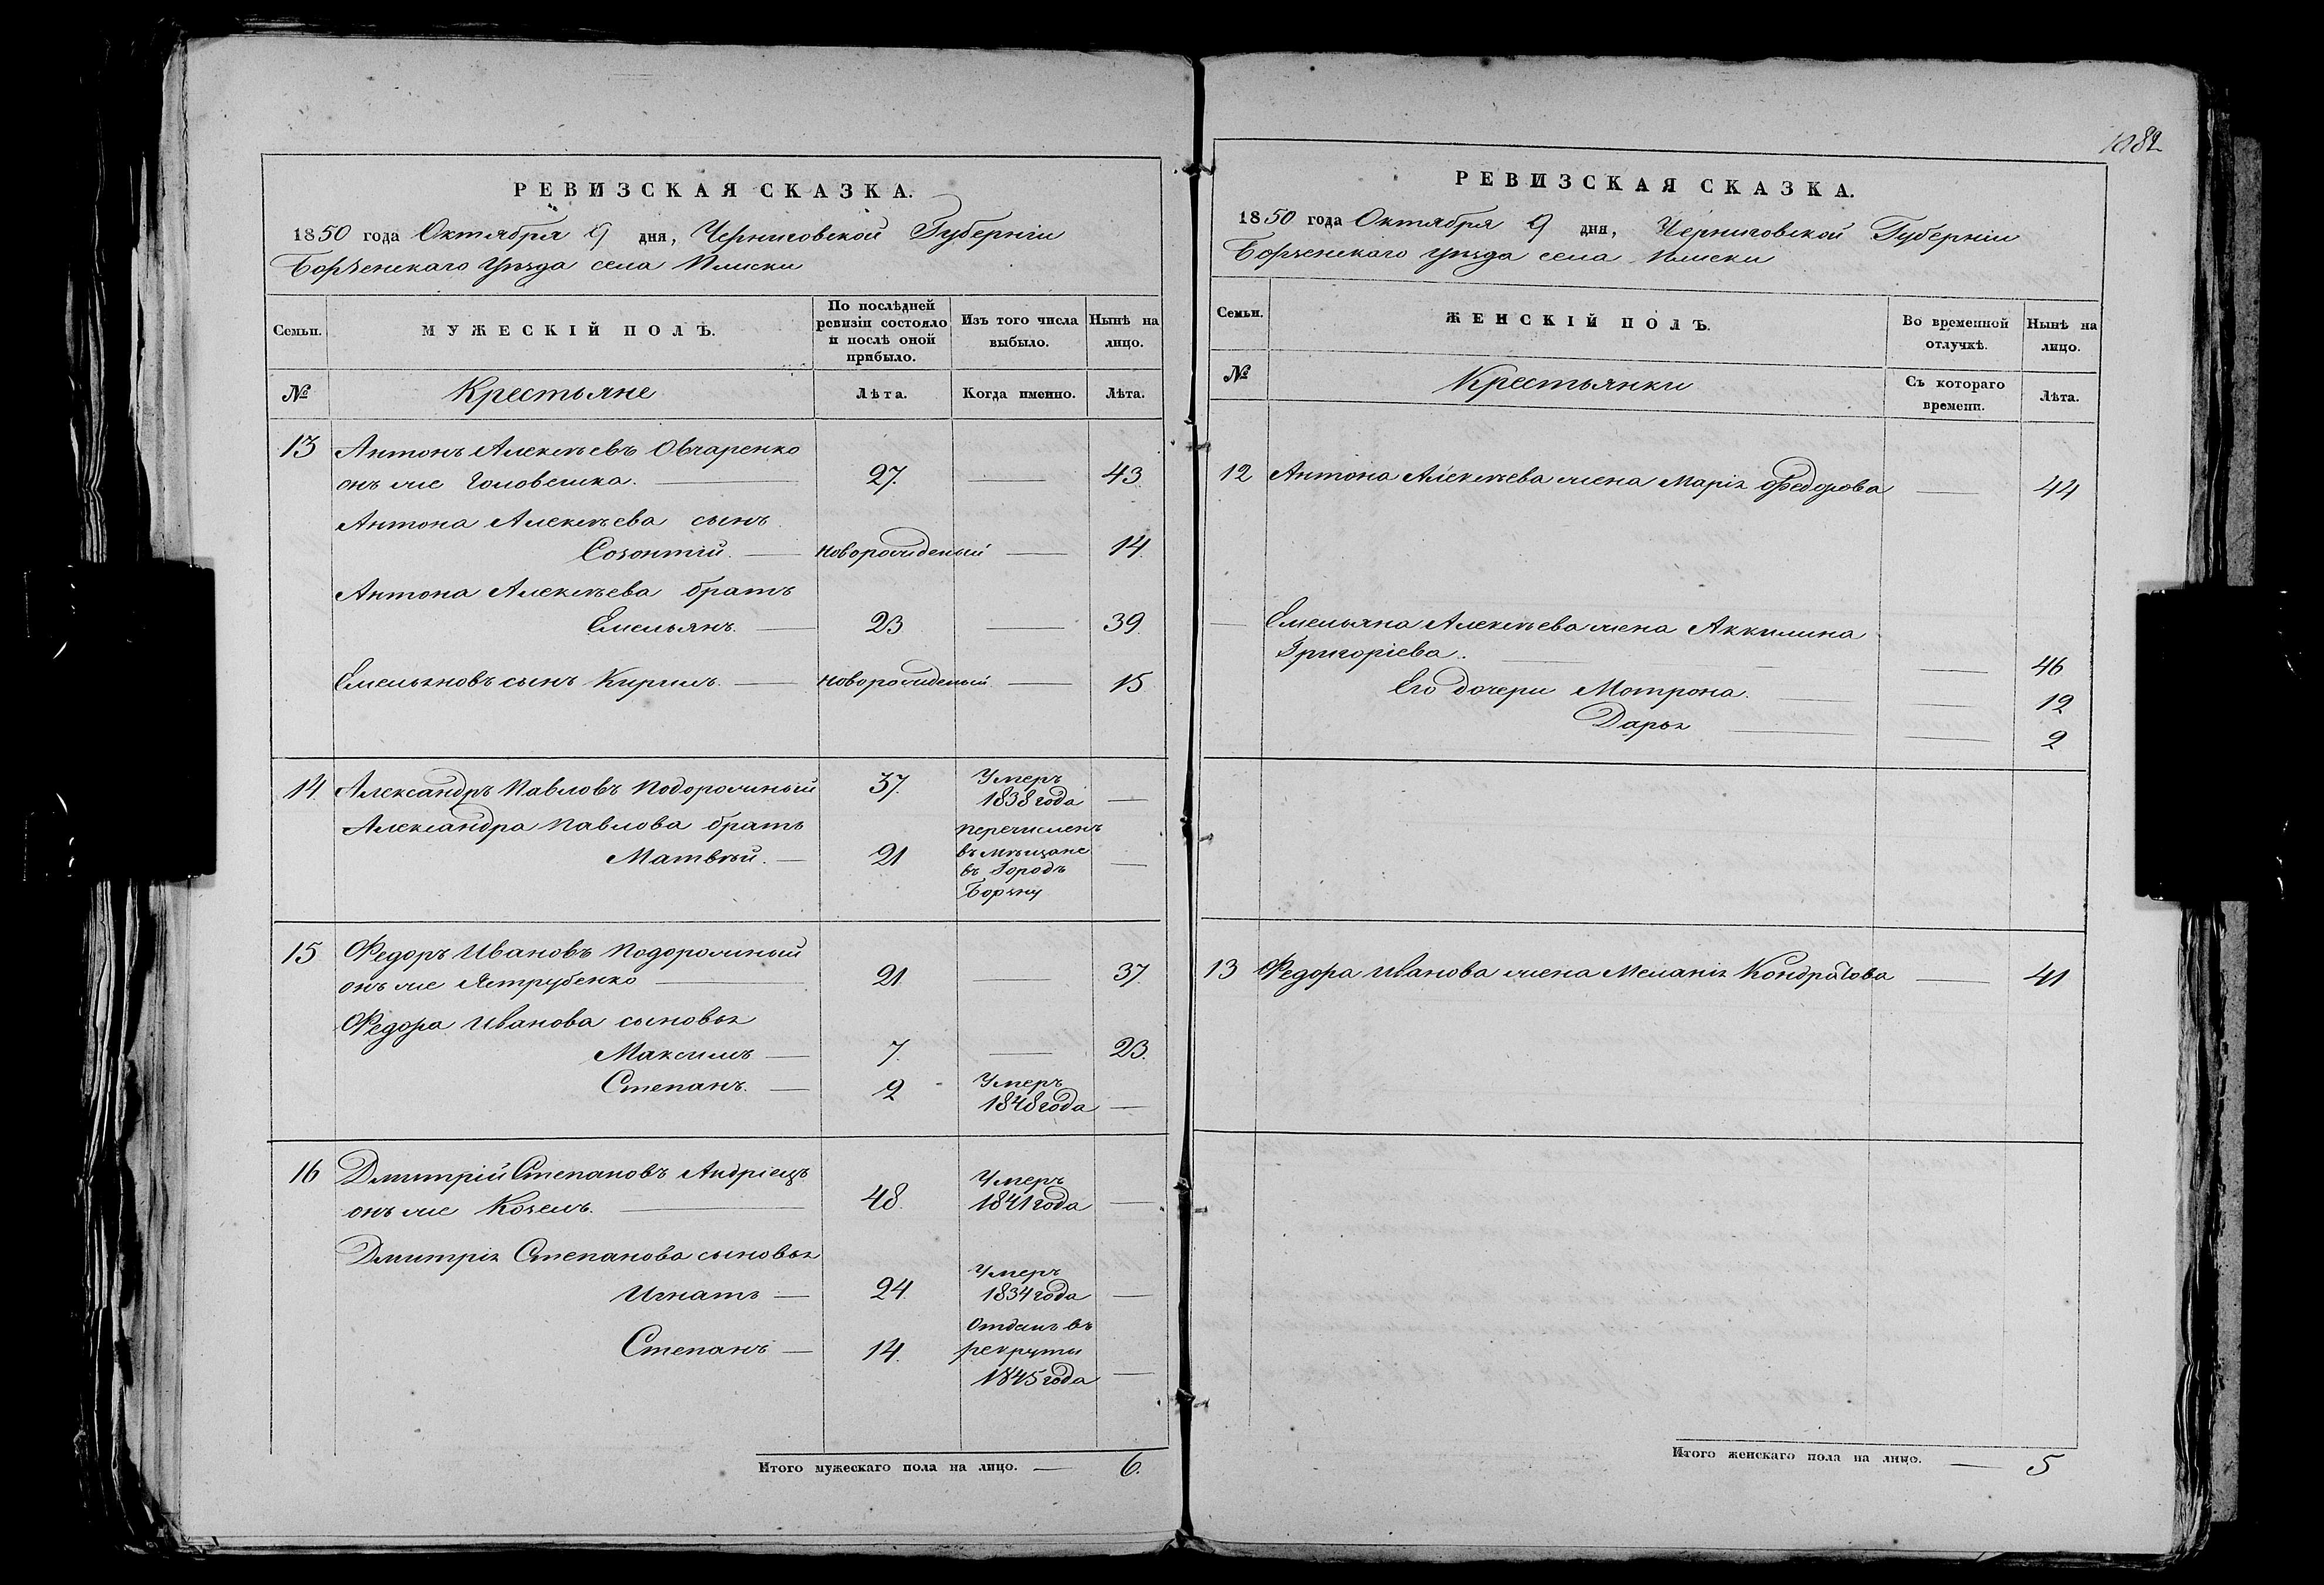 1082
РЕВИЗСКАЯ СКАЗКА.
1850 года Октября 9 дня, Черниговской Губерніи
Борзенскаго Уѣзда села Плиски
Семьи. МУЖЕСКІЙ ПОЛЪ. По послѣдней ревизіи состояло и послѣ оной прибыло. Изъ того числа выбыло. Нынѣ на лицо.
№ Крестьяне Лѣта. Когда именно. Лѣта.
13 Антонъ Алексѣевъ Овчаренко
онъ же Головешка. — 27. — 43.
Антона Алексѣева сынъ
Созонтій. — новорожденый — 14.
Антона Алексѣева братъ
Емельянъ. — 23 — 39.
Емельяновъ сынъ Кирилъ. — новорожденый — 15
14. Александръ Павловъ Подорожный 37. Умеръ
1838 года —
Александра Павлова братъ перечисленъ
Матвѣй. — 21 въ мѣщане —
въ Городъ
Борзну
15 Федоръ Ивановъ Подорожный
онъ же Яструбенко — 21. — 37.
Федора Иванова сыновья
Максимъ — 7. — 23.
Степанъ. — 2 Умеръ
1848 года —
16 Дмитрій Степановъ Андріецъ Умеръ
онъ же Козелъ. — 48. 1841 года —
Дмитрія Степанова сыновья
Умеръ
Игнатъ — 24. 1834 года —
Отданъ въ
Степанъ — 14. рекруты
1845 года —
Итого мужескаго пола на лицо. — 6.
РЕВИЗСКАЯ СКАЗКА.
1850 года Октября 9 дня, Черниговской Губерніи
Борзенскаго Уѣзда села Плиски
Семьи. ЖЕНСКІЙ ПОЛЪ. Во временной отлучкѣ. Нынѣ на лицо.
№ Крестьянки Съ котораго времени. Лѣта.
12 Антона Алексѣева жена Марія Федорова — 44
— Емельяна Алексѣева жена Аккилина
Григоріева. — — 46
Его дочери Мотрона. — — 12
Дарья — — 2
13 Федора Иванова жена Меланія Кондратова — 41
Итого женскаго пола на лицо. — 5